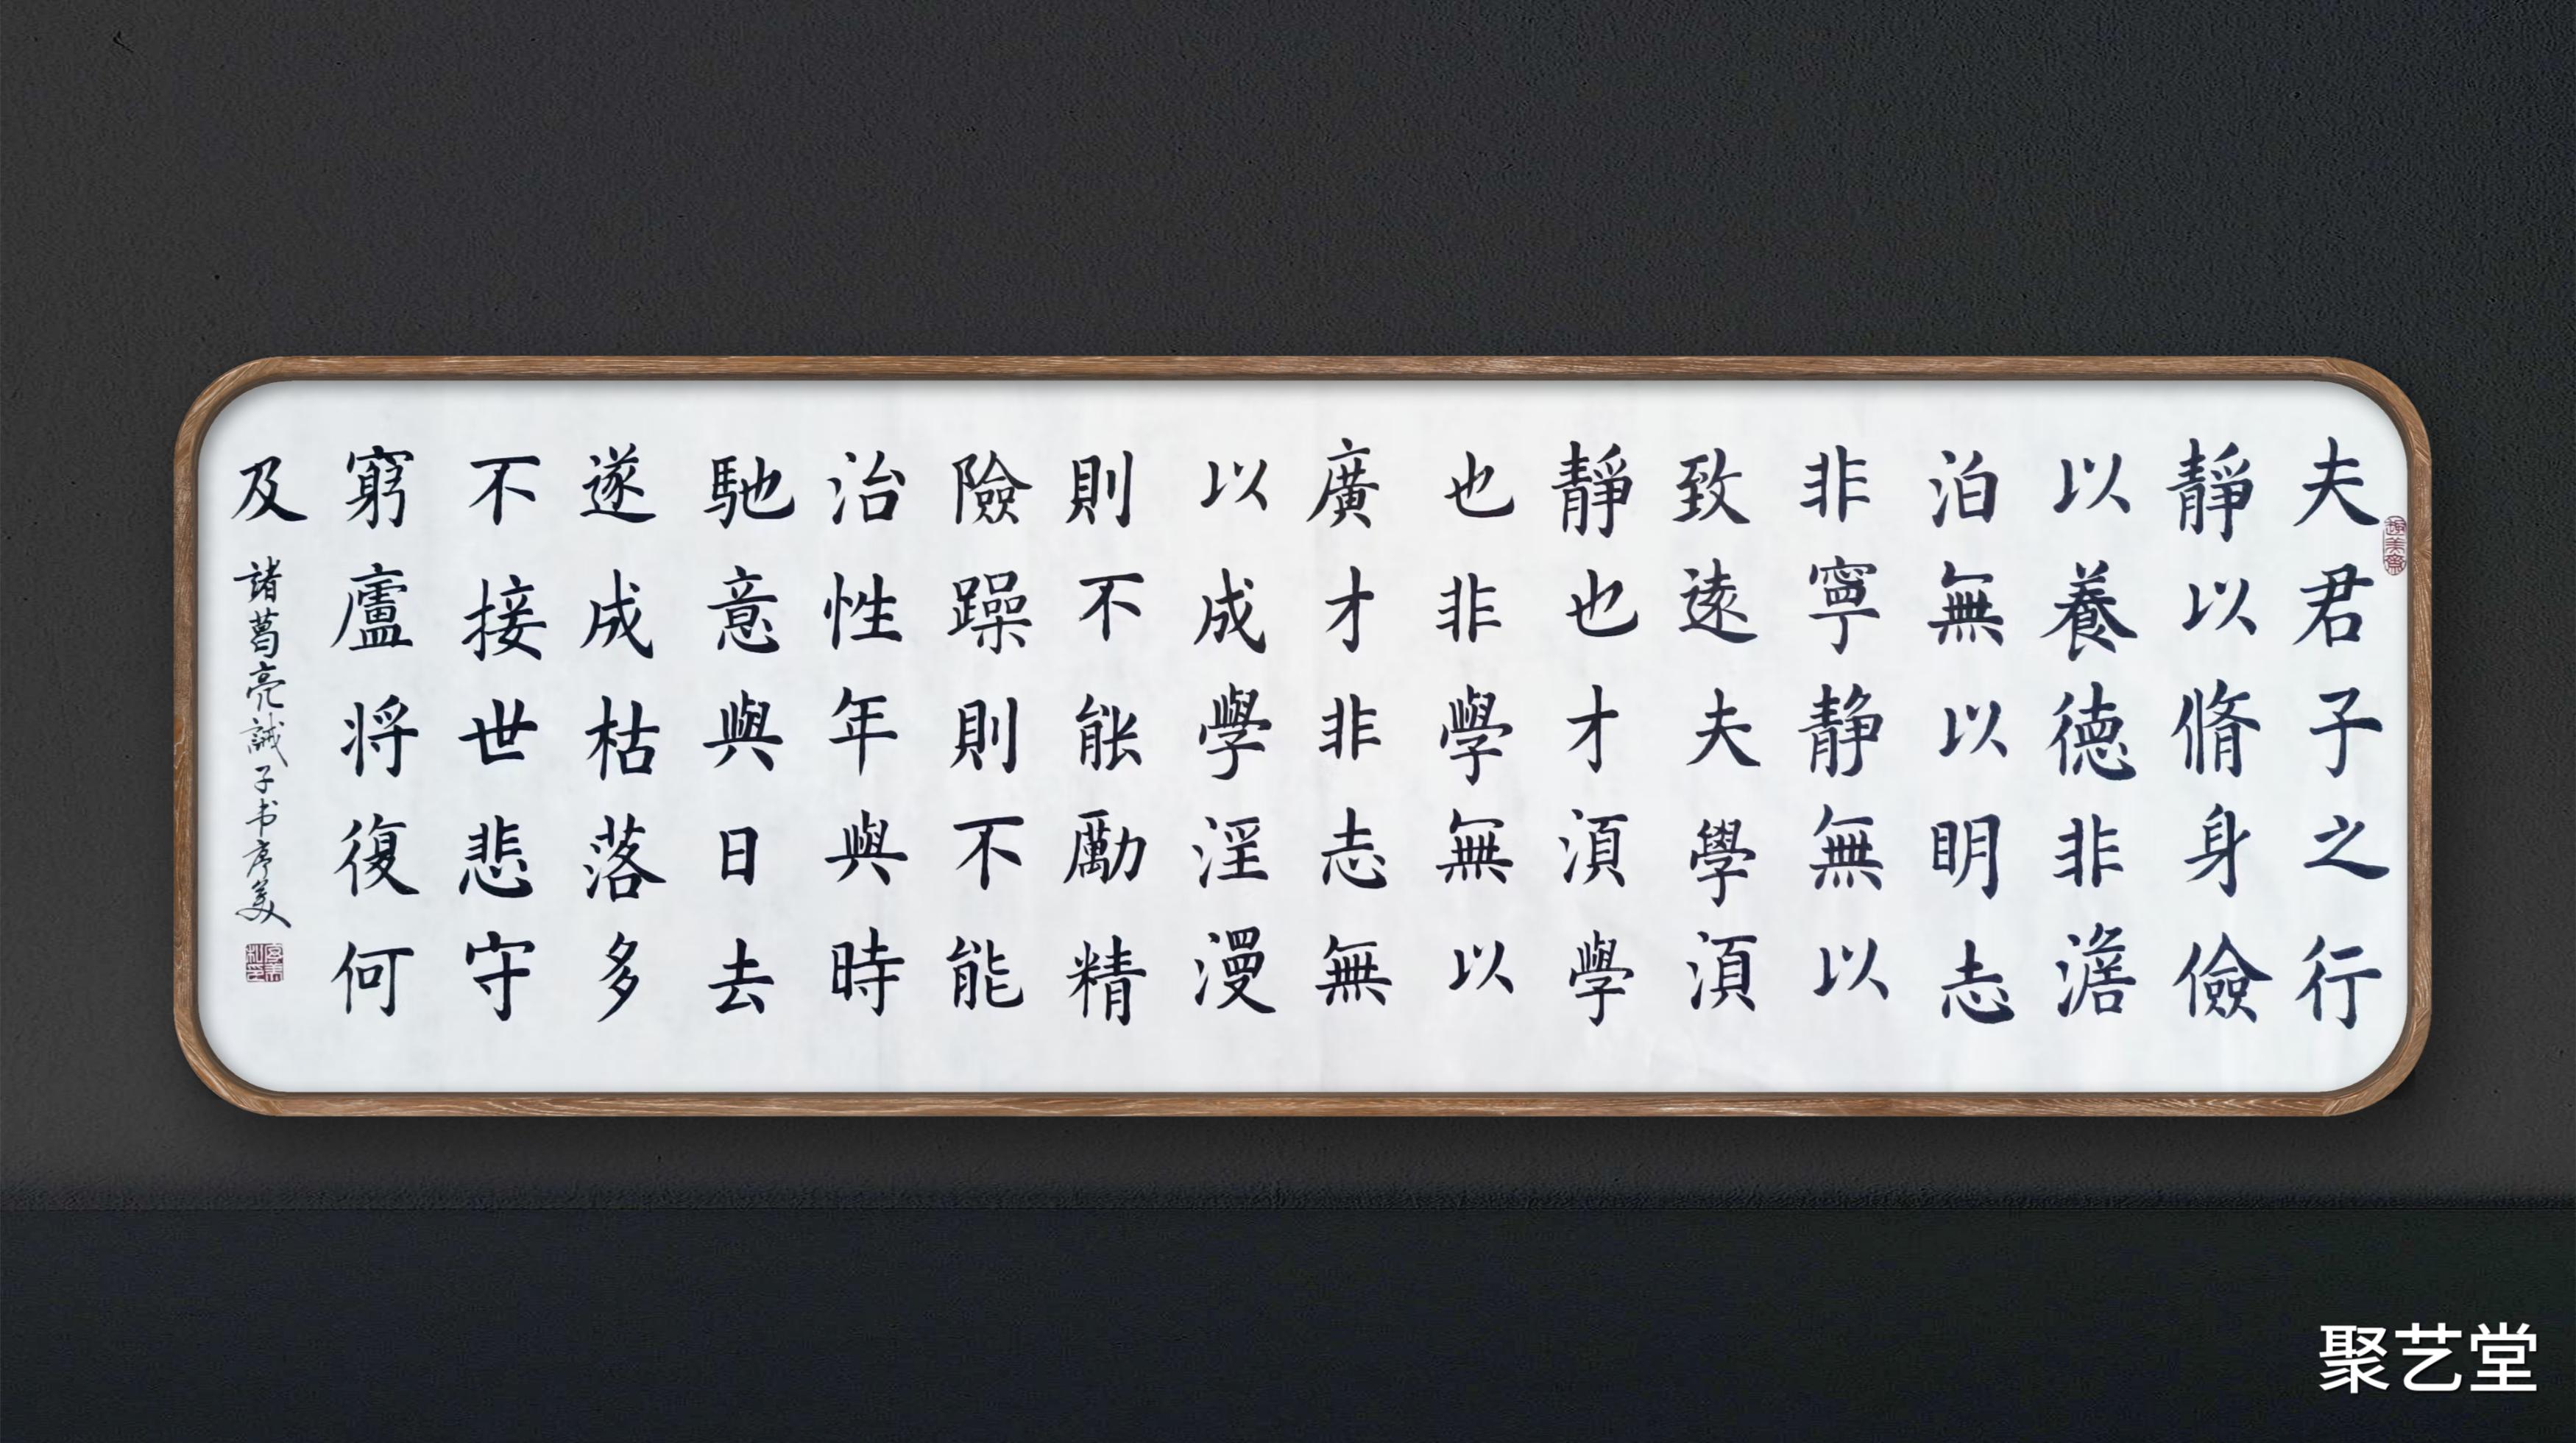 夫君子之行
靜以脩身儉
以養德非澹
泊無以明志
非寧静無以
致遠夫學湏
靜也才湏學
也非學無以
廣才非志無
以成學淫漫
則不能勵精
險躁則不能
治性年與時
馳意與日去
遂成枯落多
不接世悲守
窮廬将復何
及
諸葛亮誡子书序美
聚艺堂